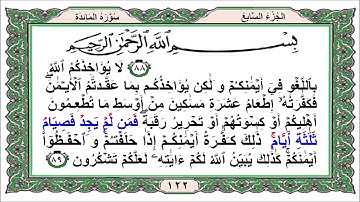 الجزء السابع
سورة المائدة
بِسْمِ اللَّهِ الرَّحْمَٰنِ الرَّحِيمِ
٨٨ لَا يُؤَاخِذُكُمُ اللَّهُ
بِاللَّغْوِ فِي أَيْمَانِكُمْ وَلَٰكِن يُؤَاخِذُكُم بِمَا عَقَّدتُّمُ الْأَيْمَانَ
فَكَفَّارَتُهُ إِطْعَامُ عَشَرَةِ مَسَاكِينَ مِنْ أَوْسَطِ مَا تُطْعِمُونَ
أَهْلِيكُمْ أَوْ كِسْوَتُهُمْ أَوْ تَحْرِيرُ رَقَبَةٍ فَمَن لَّمْ يَجِدْ فَصِيَامُ
ثَلَاثَةِ أَيَّامٍ ذَٰلِكَ كَفَّارَةُ أَيْمَانِكُمْ إِذَا حَلَفْتُمْ وَاحْفَظُوا
أَيْمَانَكُمْ كَذَٰلِكَ يُبَيِّنُ اللَّهُ لَكُمْ آيَاتِهِ لَعَلَّكُمْ تَشْكُرُونَ ٨٩
١٢٢